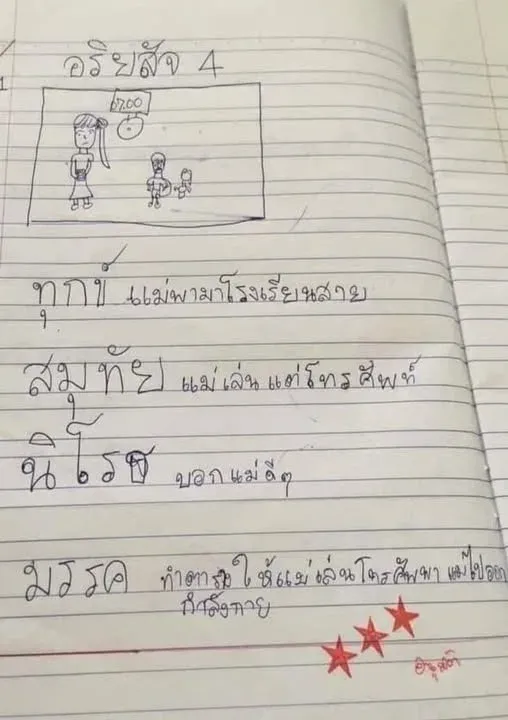 อริยสัจ 4
07.00
ทุกข์ แม่พามาโรงเรียนสาย
สมุทัย แม่เล่นแต่โทรศัพท์
นิโรธ บอกแม่ดีๆ
มรรค ให้แม่เล่นโทรศัพพา แม่ไปออก
กำลังกาย